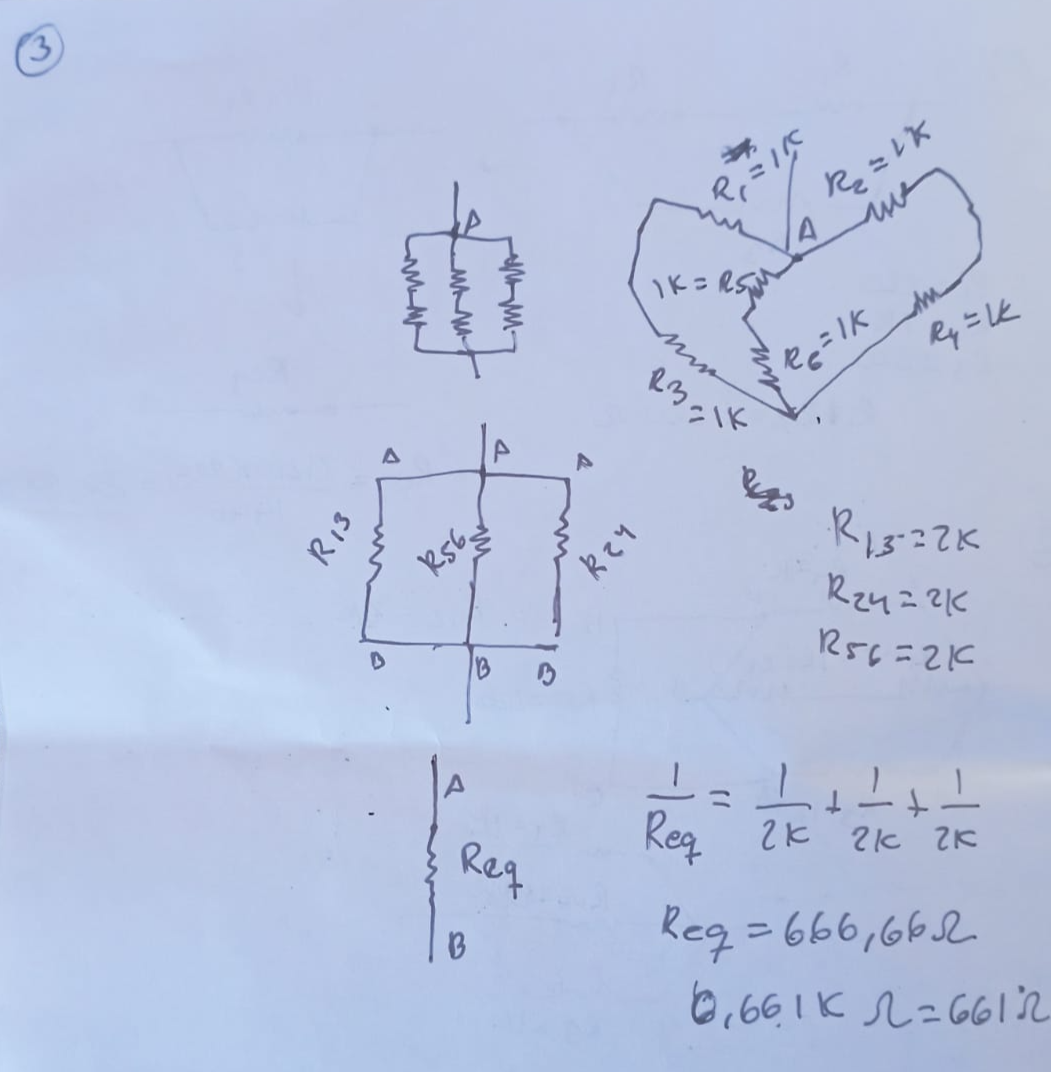 3
R1=1K
R2=1K
A
A
1K=R5
R6=1K
R4=1K
R3
=1K
A A A
R13 R56 R24
B B B
R13=2K
R24=2K
R56=2K
A
Req
B
1/Req = 1/2K + 1/2K + 1/2K
Req = 666,66Ω
0,661KΩ=661Ω